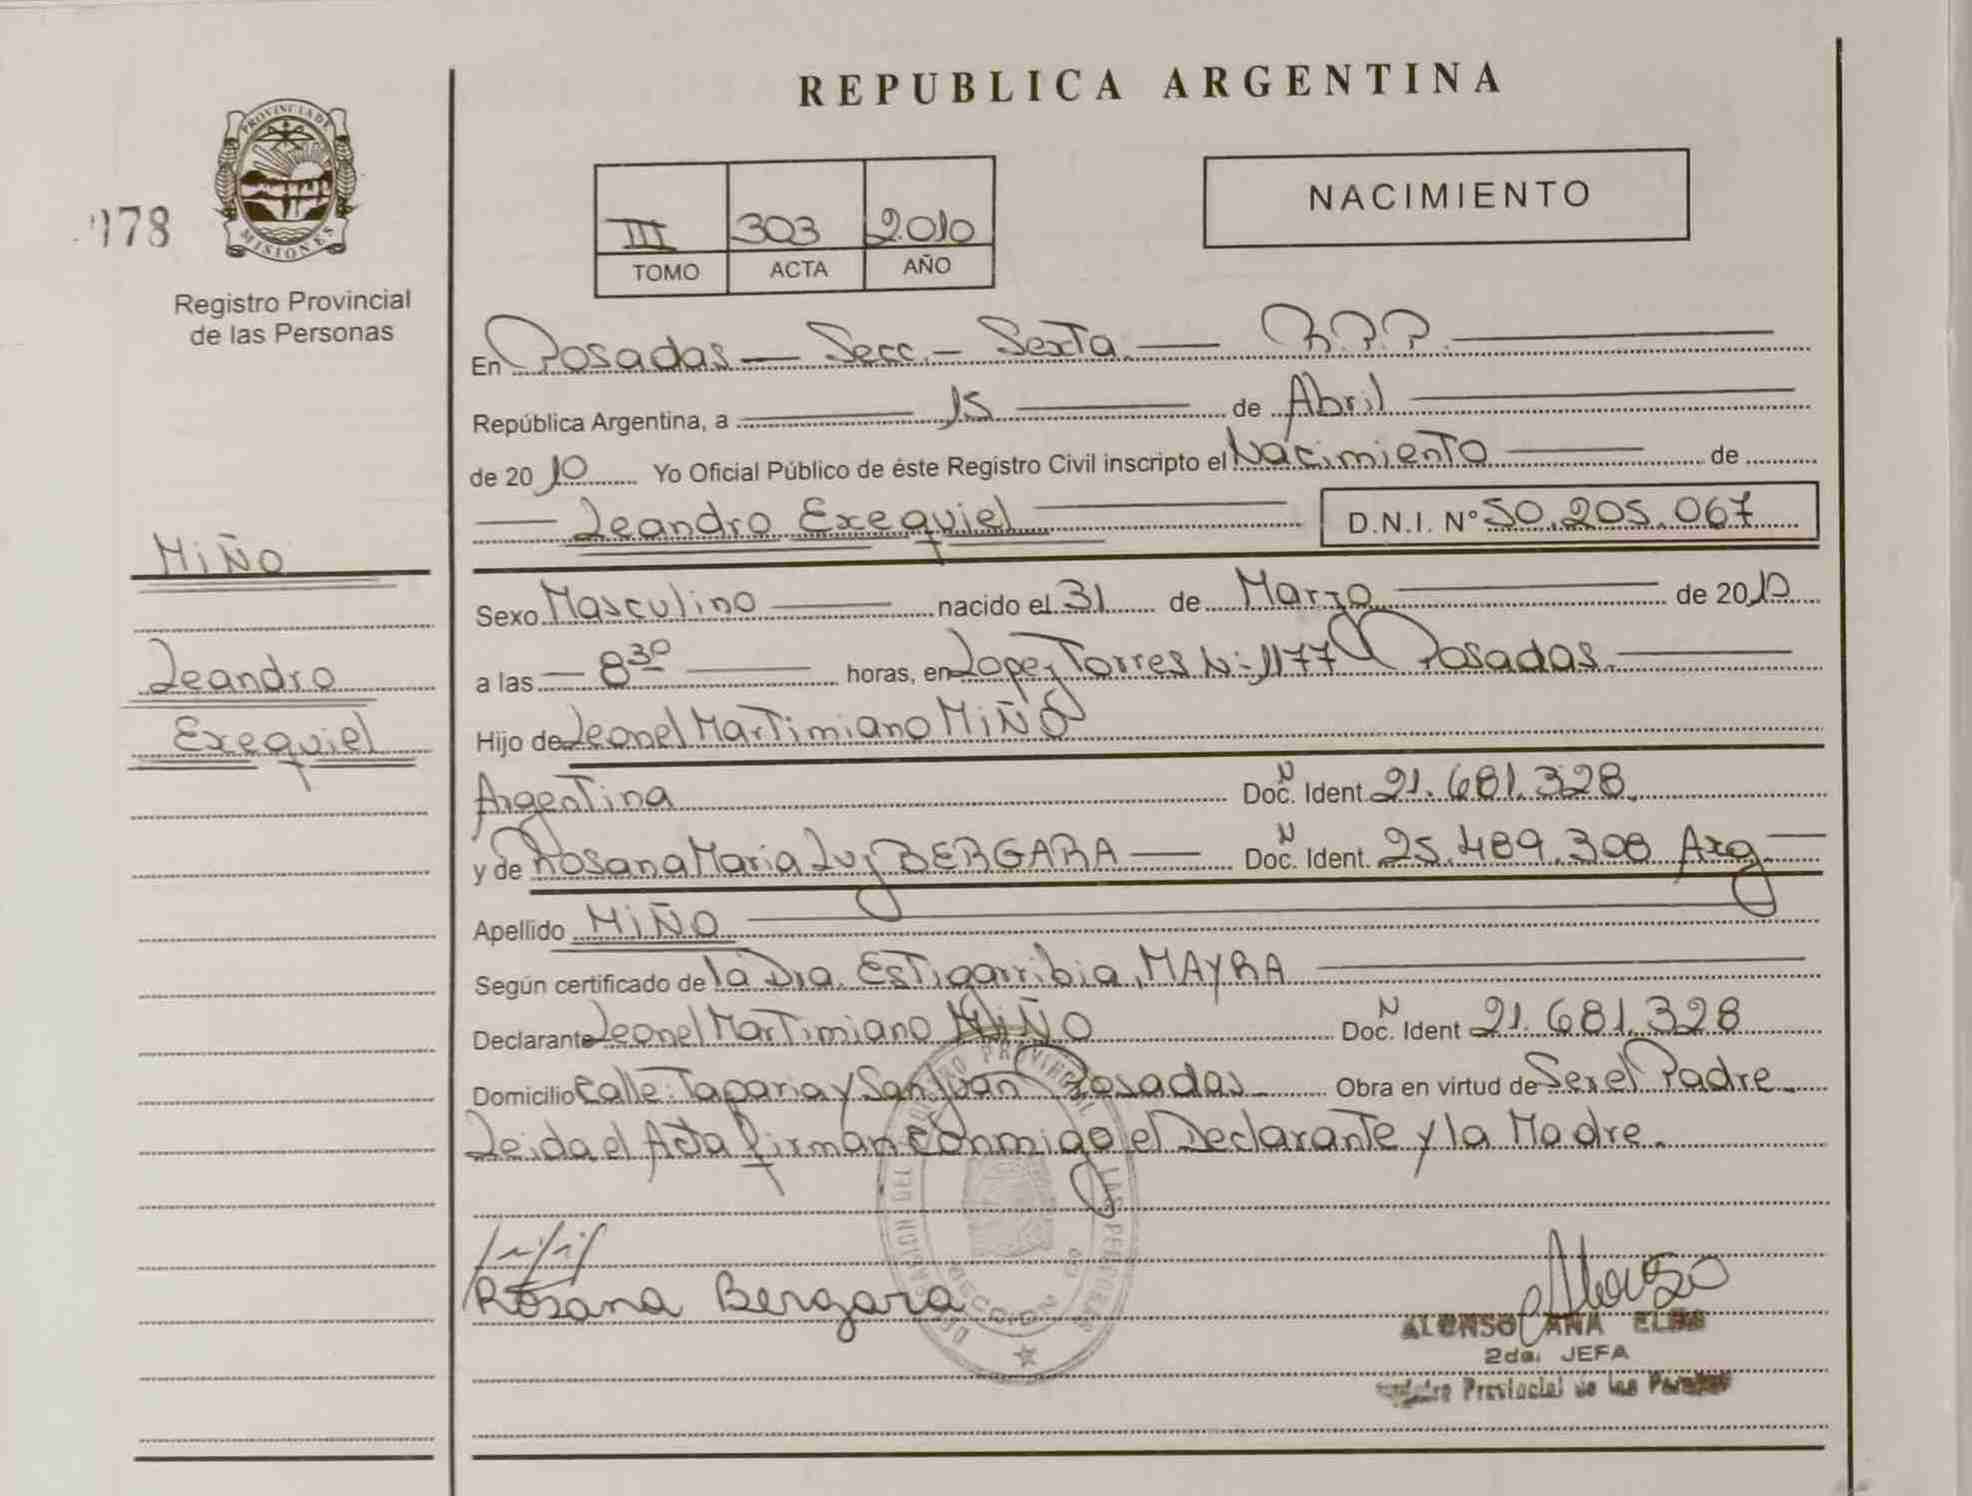 REPUBLICA ARGENTINA
PROVINCIA DE
MISIONES
178
Registro Provincial
de las Personas
III 303 2010
TOMO ACTA AÑO
NACIMIENTO
En Posadas — Secc. — Sexta — R.P.P.
República Argentina, a 15 de Abril
de 2010 Yo Oficial Público de éste Registro Civil inscripto el Nacimiento de
Leandro Exequiel D.N.I. N° 50.205.067
MiÑo
Leandro
Exequiel
Sexo Masculino nacido el 31 de Marzo de 2010
a las 8 30 horas, en Lopez Torres N: 1177 Posadas
Hijo de Leonel Martimiano MiÑo
Argentina Doc. N Ident. 21.681.328
y de Rosana Maria Luz BERGARA Doc. N Ident. 25.489.308 Arg.
Apellido MiÑo
Según certificado de la Dra. Estigarribia, MAYRA
Declarante Leonel Martimiano MiÑo Doc. N Ident 21.681.328
Domicilio Calle: Taparia y San Juan Posadas Obra en virtud de Ser el Padre
Leida el Acta firman conmigo el Declarante y la Madre.
Rosana Bergara
Alonso
ALONSO ANA ELBA
2da. JEFA
Provincial de las Personas